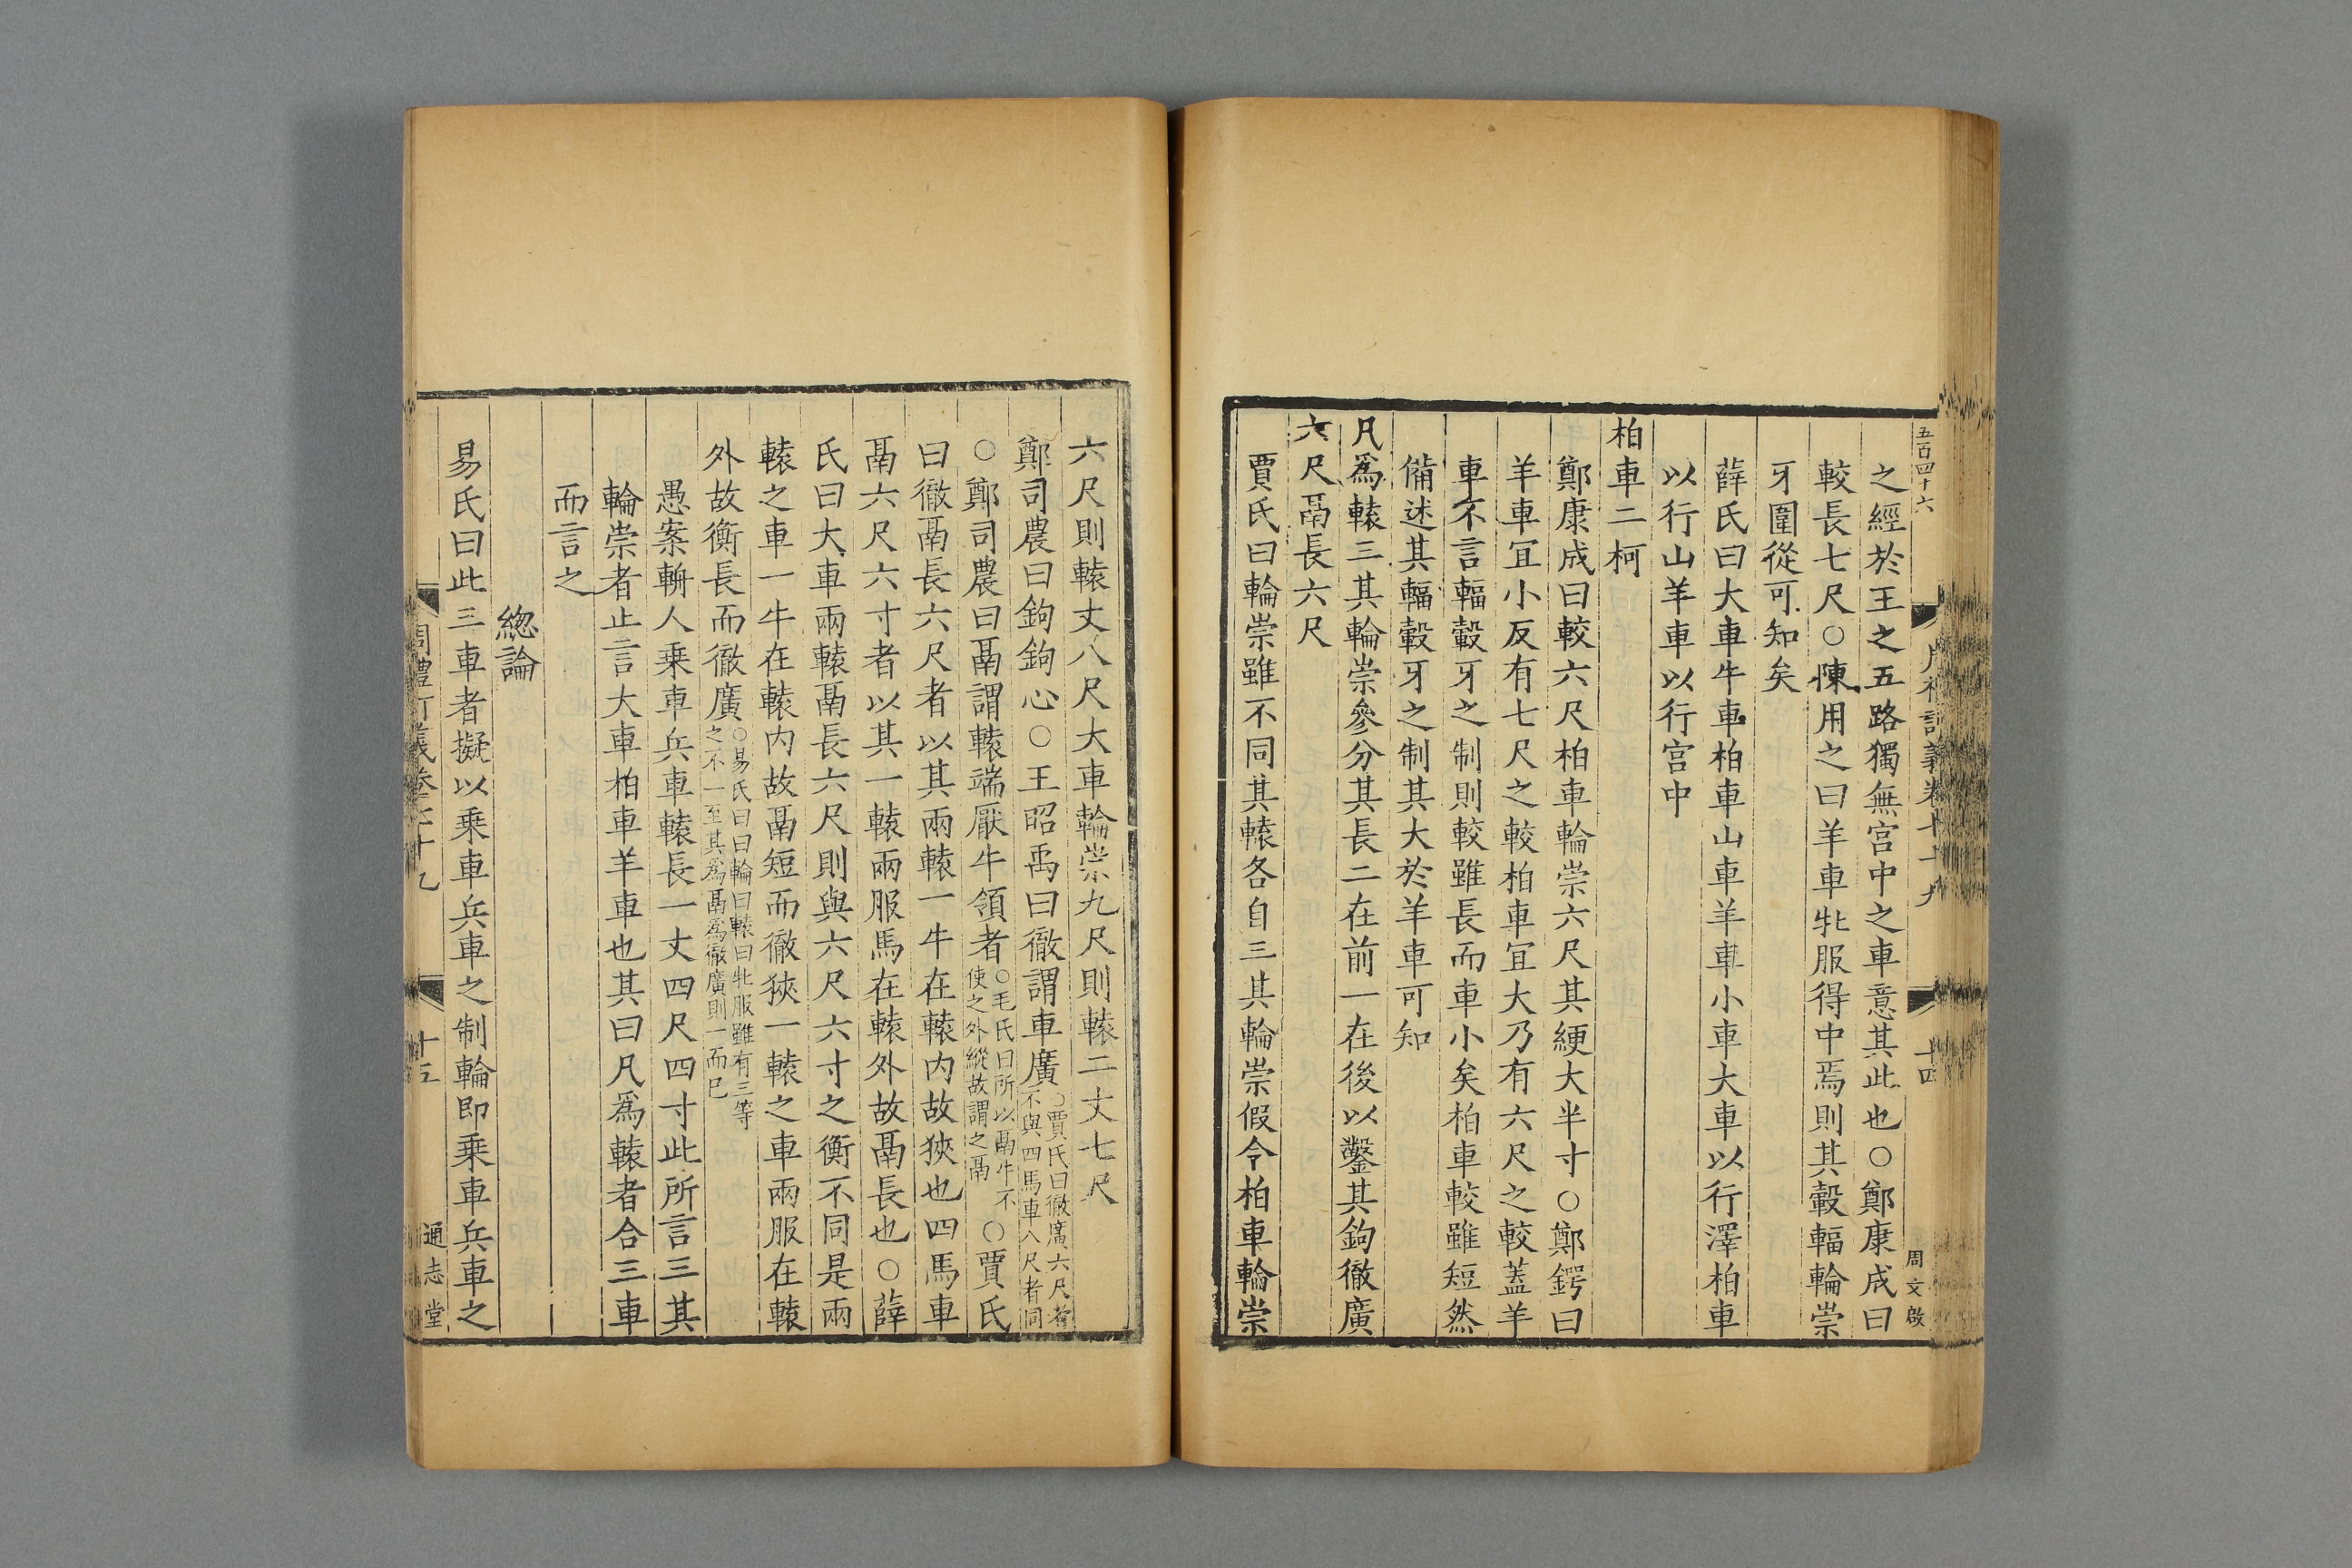 五百四十六
周禮訂義卷七十九
十四
周文啟
之經於王之五路獨無宮中之車意其此也○鄭康成曰
較長七尺○陳用之曰羊車牝服得中焉則其轂輻輪崇
牙圍從可知矣
薛氏曰大車牛車柏車山車羊車小車大車以行澤柏車
以行山羊車以行宮中
柏車二柯
鄭康成曰較六尺柏車輪崇六尺其綆大半寸○鄭鍔曰
羊車宜小反有七尺之較柏車宜大乃有六尺之較蓋羊
車不言輻轂牙之制則較雖長而車小矣柏車較雖短然
備述其輻轂牙之制其大於羊車可知
凡為轅三其輪崇參分其長二在前一在後以鑿其鉤徹廣
六尺鬲長六尺
賈氏曰輪崇雖不同其轅各自三其輪崇假令柏車輪崇
六尺則轅丈八尺大車輪崇九尺則轅二丈七尺
鄭司農曰鉤鉤心○王昭禹曰徹謂車廣○賈氏曰徹廣六尺者不與四馬車八尺者同
○鄭司農曰鬲謂轅端厭牛領者○毛氏曰所以鬲牛不使之外縱故謂之鬲○賈氏
曰徹鬲長六尺者以其兩轅一牛在轅內故狹也四馬車
鬲六尺六寸者以其一轅兩服馬在轅外故鬲長也○薛
氏曰大車兩轅鬲長六尺則與六尺六寸之衡不同是兩
轅之車一牛在轅內故鬲短而徹狹一轅之車兩服在轅
外故衡長而徹廣○易氏曰曰輪曰轅曰牝服雖有三等之不一至其為鬲為徹廣則一而已
愚案輈人乘車兵車轅長一丈四尺四寸此所言三其
輪崇者止言大車柏車羊車也其曰凡為轅者合三車
而言之
總論
易氏曰此三車者擬以乘車兵車之制輪即乘車兵車之
周禮訂義卷七十九
十五
通志堂